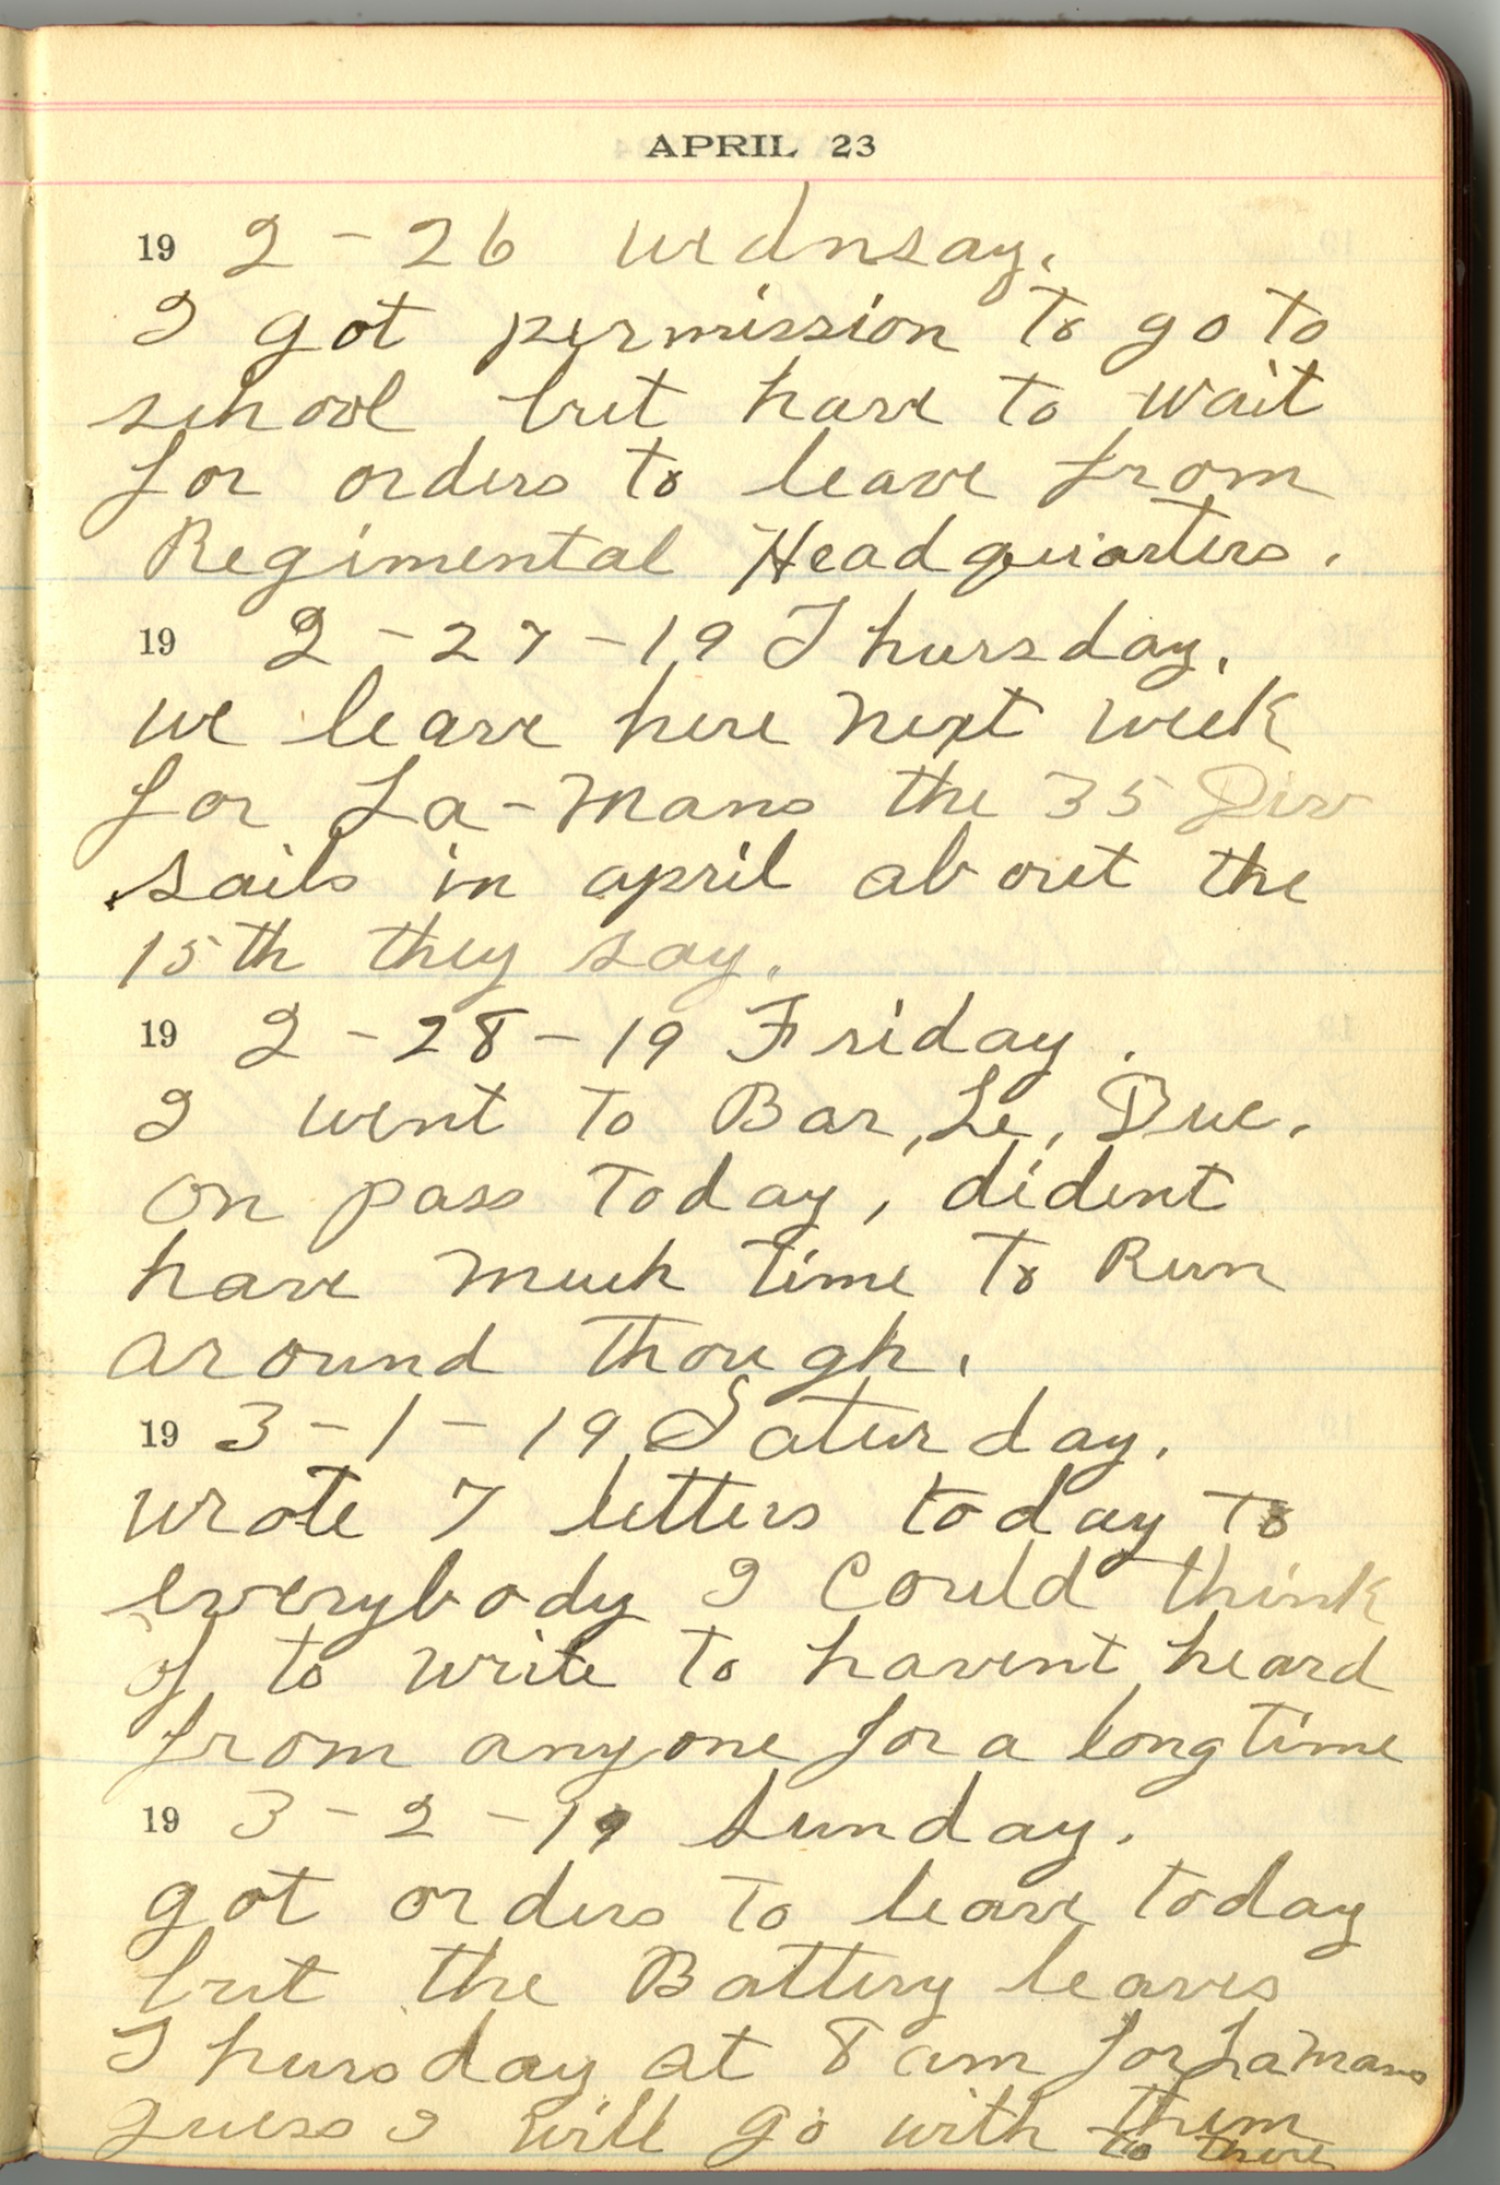 APRIL 23
19 2-26 Wednsay.
I got permission to go to
school but have to wait
for orders to leave from
Regimental Headquarters.
19 2-27-19 Thursday.
we leave here next week
for La-Mans the 35 Div
sails in april about the
15th they say.
19 2-28-19 Friday.
I went to Bar, Le, Duc.
on pass today, dident
have much time to Run
around though.
19 3-1-19 Saturday.
wrote 7 letters today to
everybody I Could think
of to write to havent heard
from anyone for a long time
19 3-2-19 Sunday.
got orders to leave today
but the Battery leaves
Thursday at 8 am for La Mans
guess I will go with them
to there